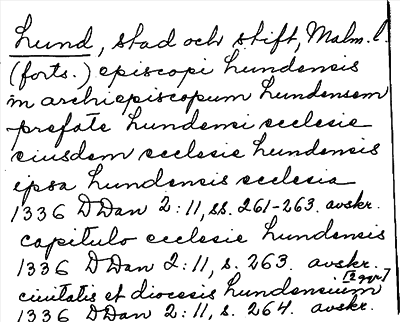 Lund, stad och stift, Malm. l.
(forts.) episcopi lundensis
in archiepiscopum lundensem
prefate lundensi ecclesie
eiusdem ecclesie lundensis
ipsa lundensis ecclesia
1336 DDan 2:11, ss. 261-263. avskr.
capitulo ecclesie lundensis
1336 DDan 2:11, s. 263. avskr.
[2 ggr]
civitatis et diocesis lundensium
1336 DDan 2:11, s. 264. avskr.